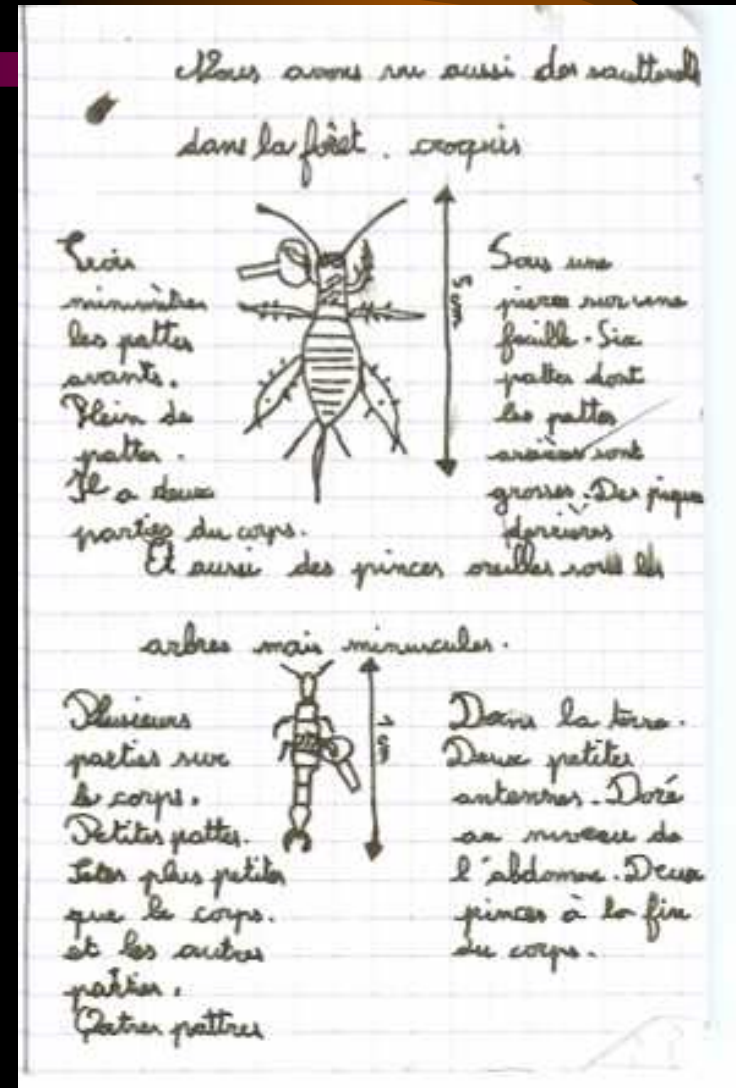 Nous avons vu aussi des sautterell
dans la forêt. croquis
Trois
minimètres
les pattes
avants.
Plein de
pattes.
Il a deux
parties du corps.
5 cm
Sous une
pierre sur une
feuille. Six
pattes dont
les pattes
arrières sont
grosses. Des pique
derrières
Et aussi des pinces oreilles sous les
arbres mais minuscules.
Plusieurs
parties sur
le corps.
Petites pattes.
Tetes plus petites
que le corps.
et les autres
parties.
Qatres pattres
1 cm
Dans la terre.
Deux petites
antennes. Doré
au niveau de
l'abdomen. Deux
pinces à la fin
du corps.